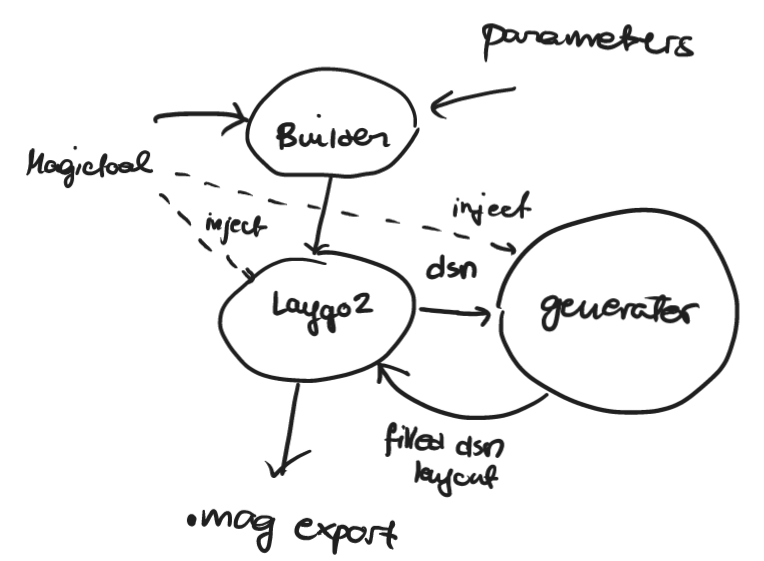 parameters
Builder
Magictool
inject
inject
dsn
Laygo2
generatter
filled dsn
layout
.mag export